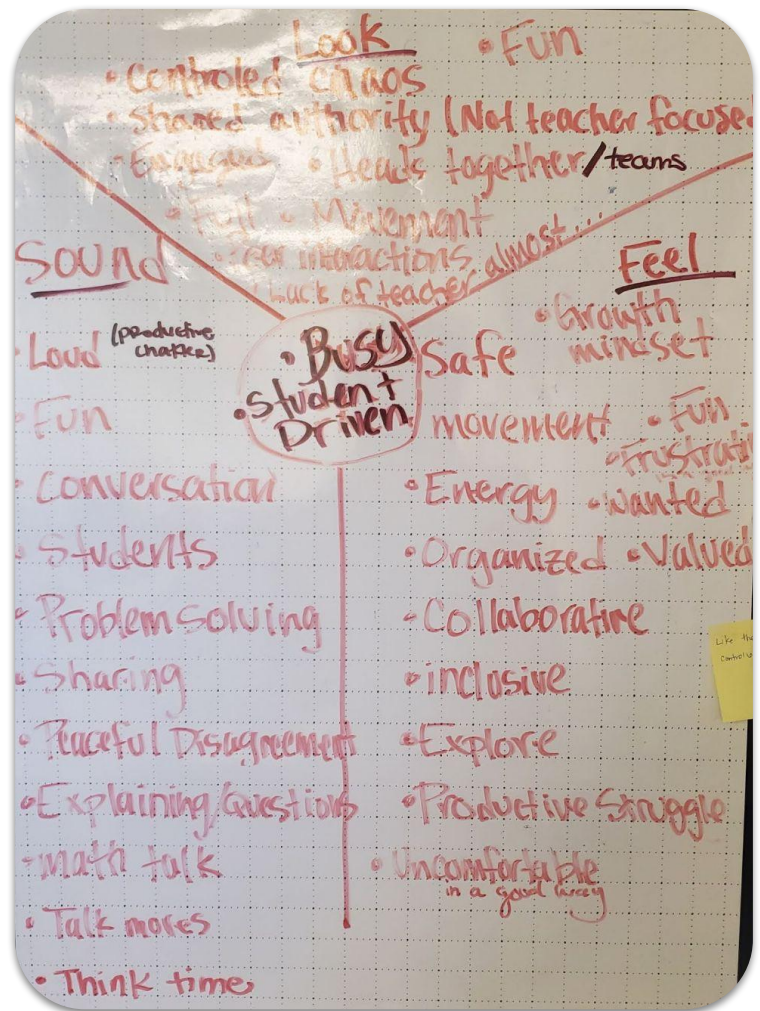 Look
• Fun
• controled chaos
• shared authority (Not teacher focuse
• Engaged • Heads together/teams
• Full • Movement
interactions
Lack of teacher almost...
Sound
• Loud (productive
chatter)
• Fun
• Conversation
• Students
• Problem solving
• Sharing
• Peaceful Disagreement
• Explaining/Questions
• math talk
• Talk moves
• Think time
• Busy
• Student
Driven
Feel
• Growth
mindset
Safe
movement • Fun
• Frustrati
• Energy • Wanted
• Organized • Valued
• Collaborative
• inclusive
• Explore
• Productive Struggle
• Uncomfortable
in a good way
Like the